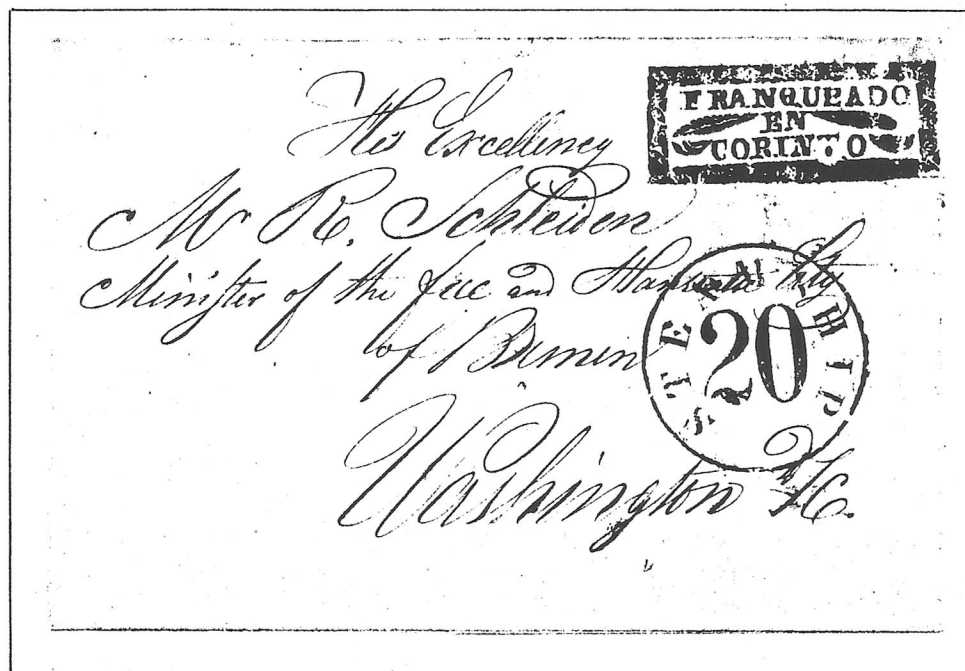 FRANQUEADO
EN
CORINTO
His Excellency
Mr R. Schleiden
Minister of the free and Hanseatic City
of Bremen
STEAMSHIP
20
Washington DC.